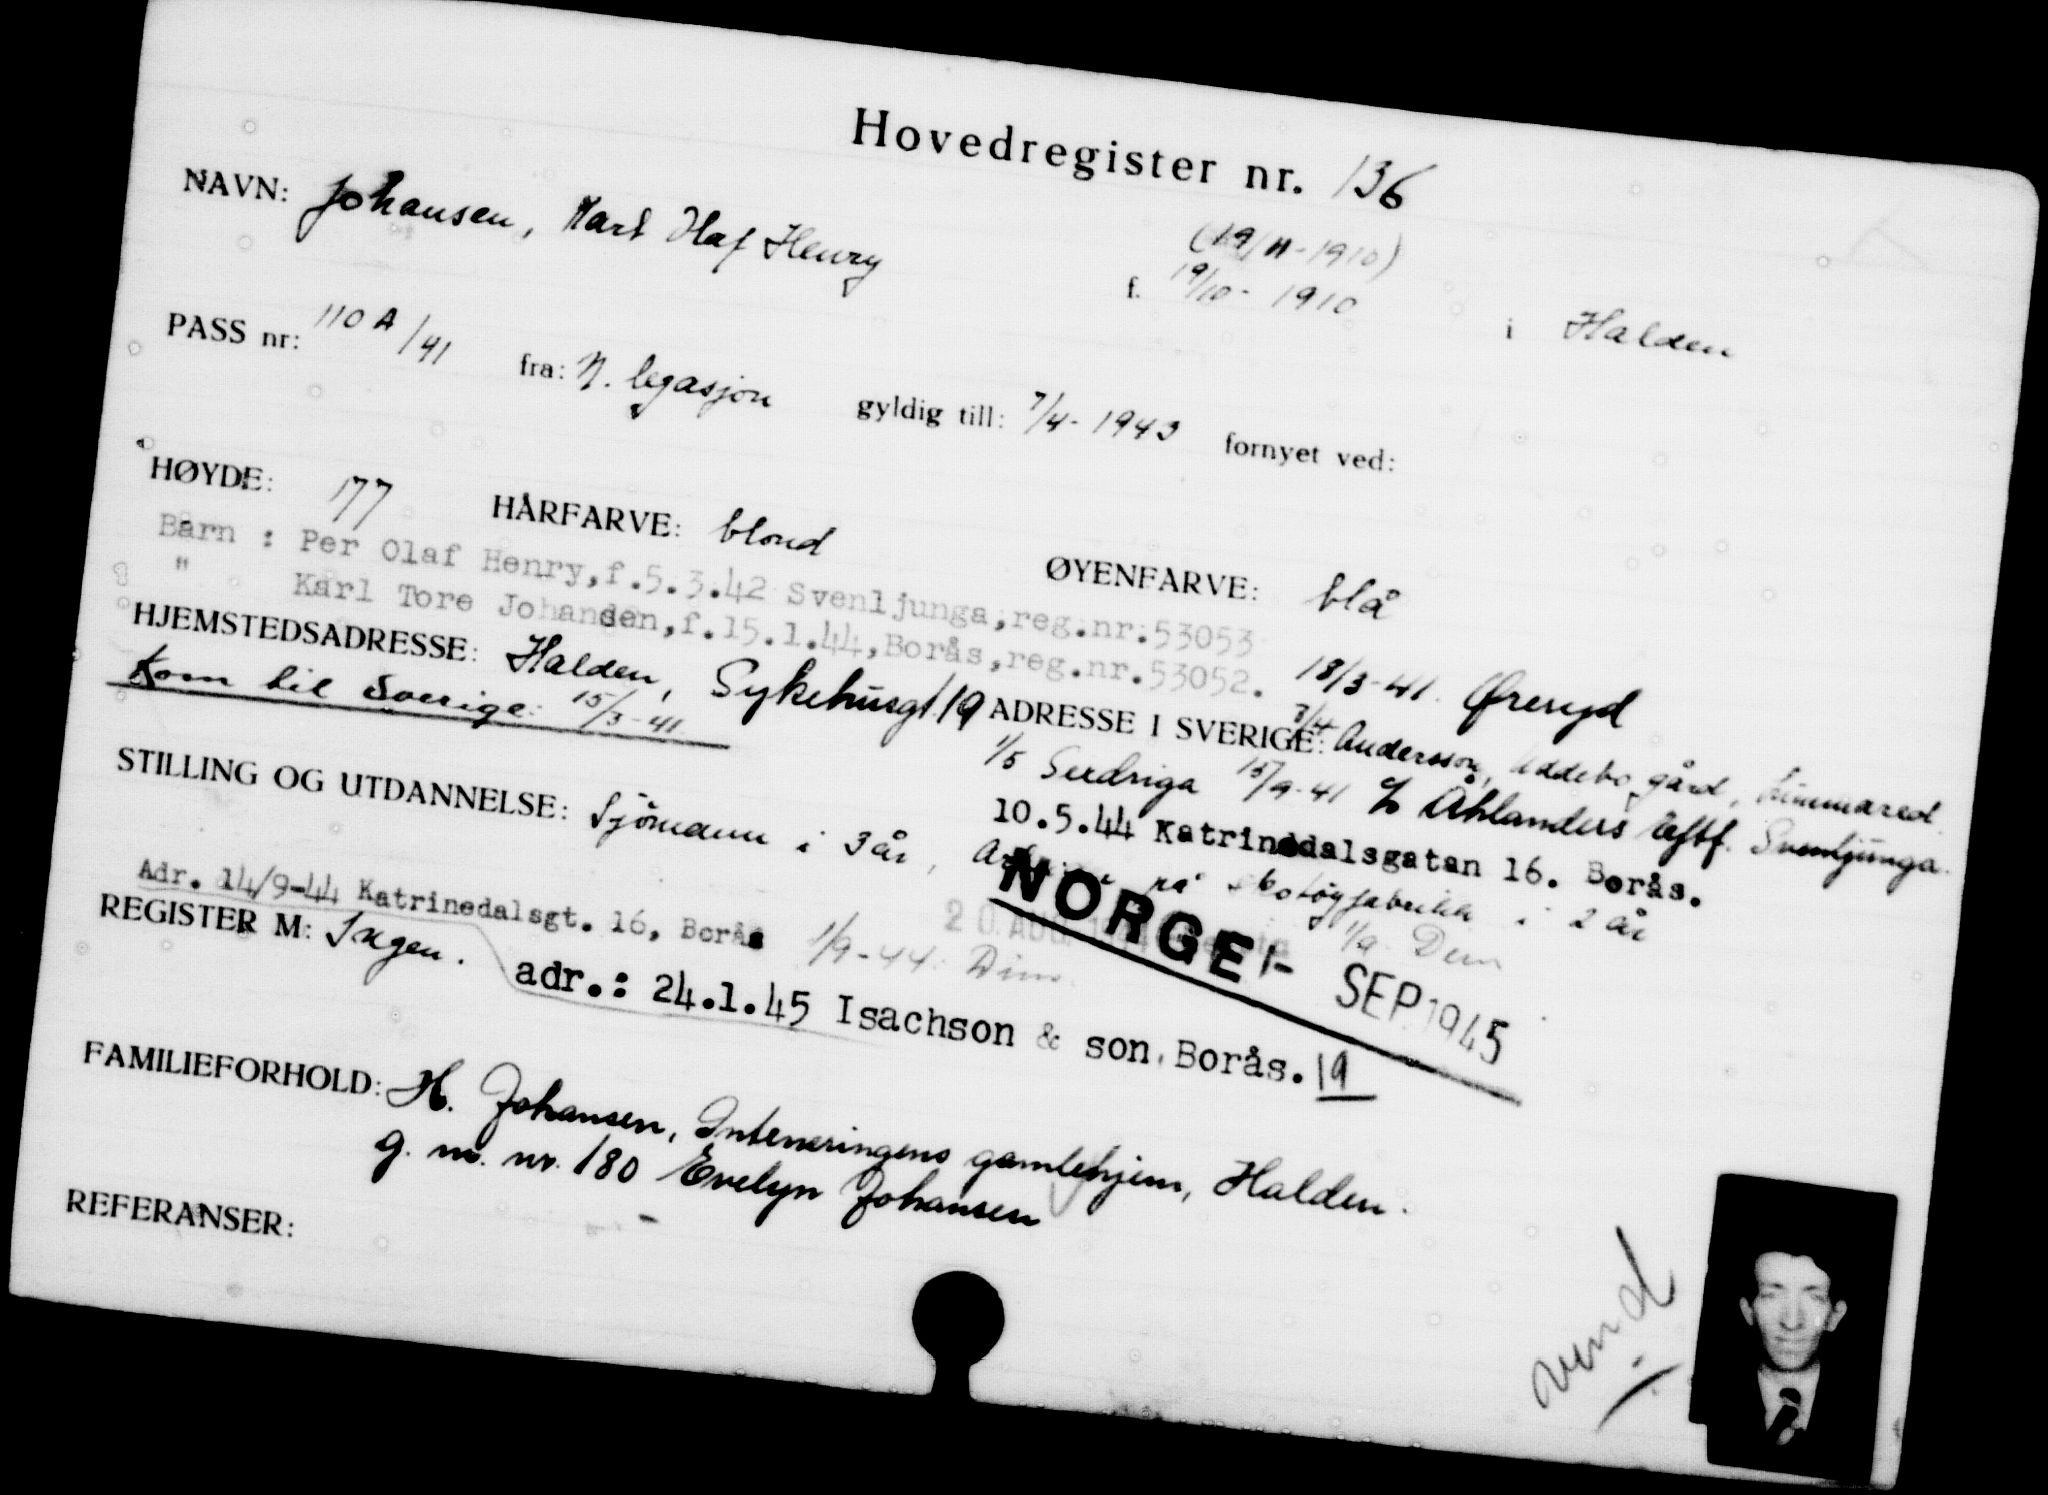 Hovedregister nr. 136
NAVN: Johansen, Karl Olaf Henry
(19/11-1910)
f. 19/10-1910 i Halden
PASS nr: 110 A/41 fra: N. legasjon gyldig till: 7/4-1943 fornyet ved:
HØYDE: 177 HÅRFARVE: blond ØYENFARVE: blå
Barn : Per Olaf Henry,f.5.3.42 Svenljunga,reg.nr.53053
" Karl Tore Johansen,f.15.1.44,Borås,reg.nr.53052.
HJEMSTEDSADRESSE: Halden, Sykehusgt. 19
Kom til Sverige: 15/3-41.
ADRESSE I SVERIGE: 18/3-41. Øreryd
3/4 Andersson, Uddebo gård, Limmared.
1/5 Sexdriga 15/9-41 c/o Åhlanders Eftf. Svenljunga.
10.5.44 Katrinedalsgatan 16. Borås.
STILLING OG UTDANNELSE: Sjömann i 3 år, Arbeider på skotøyfabrikk i 2 år
Adr. 14/9-44 Katrinedalsgt. 16, Borås 1/9-44. Dim.
20 AUG 1944
1/9 Dem
NORGE 1- SEP 1945
REGISTER M: Ingen.
adr.: 24.1.45 Isachson & son, Borås. 19
FAMILIEFORHOLD: H. Johansen, Interneringens gamlehjem, Halden.
g. m. nr. 180 Evelyn Johansen
REFERANSER:
vend